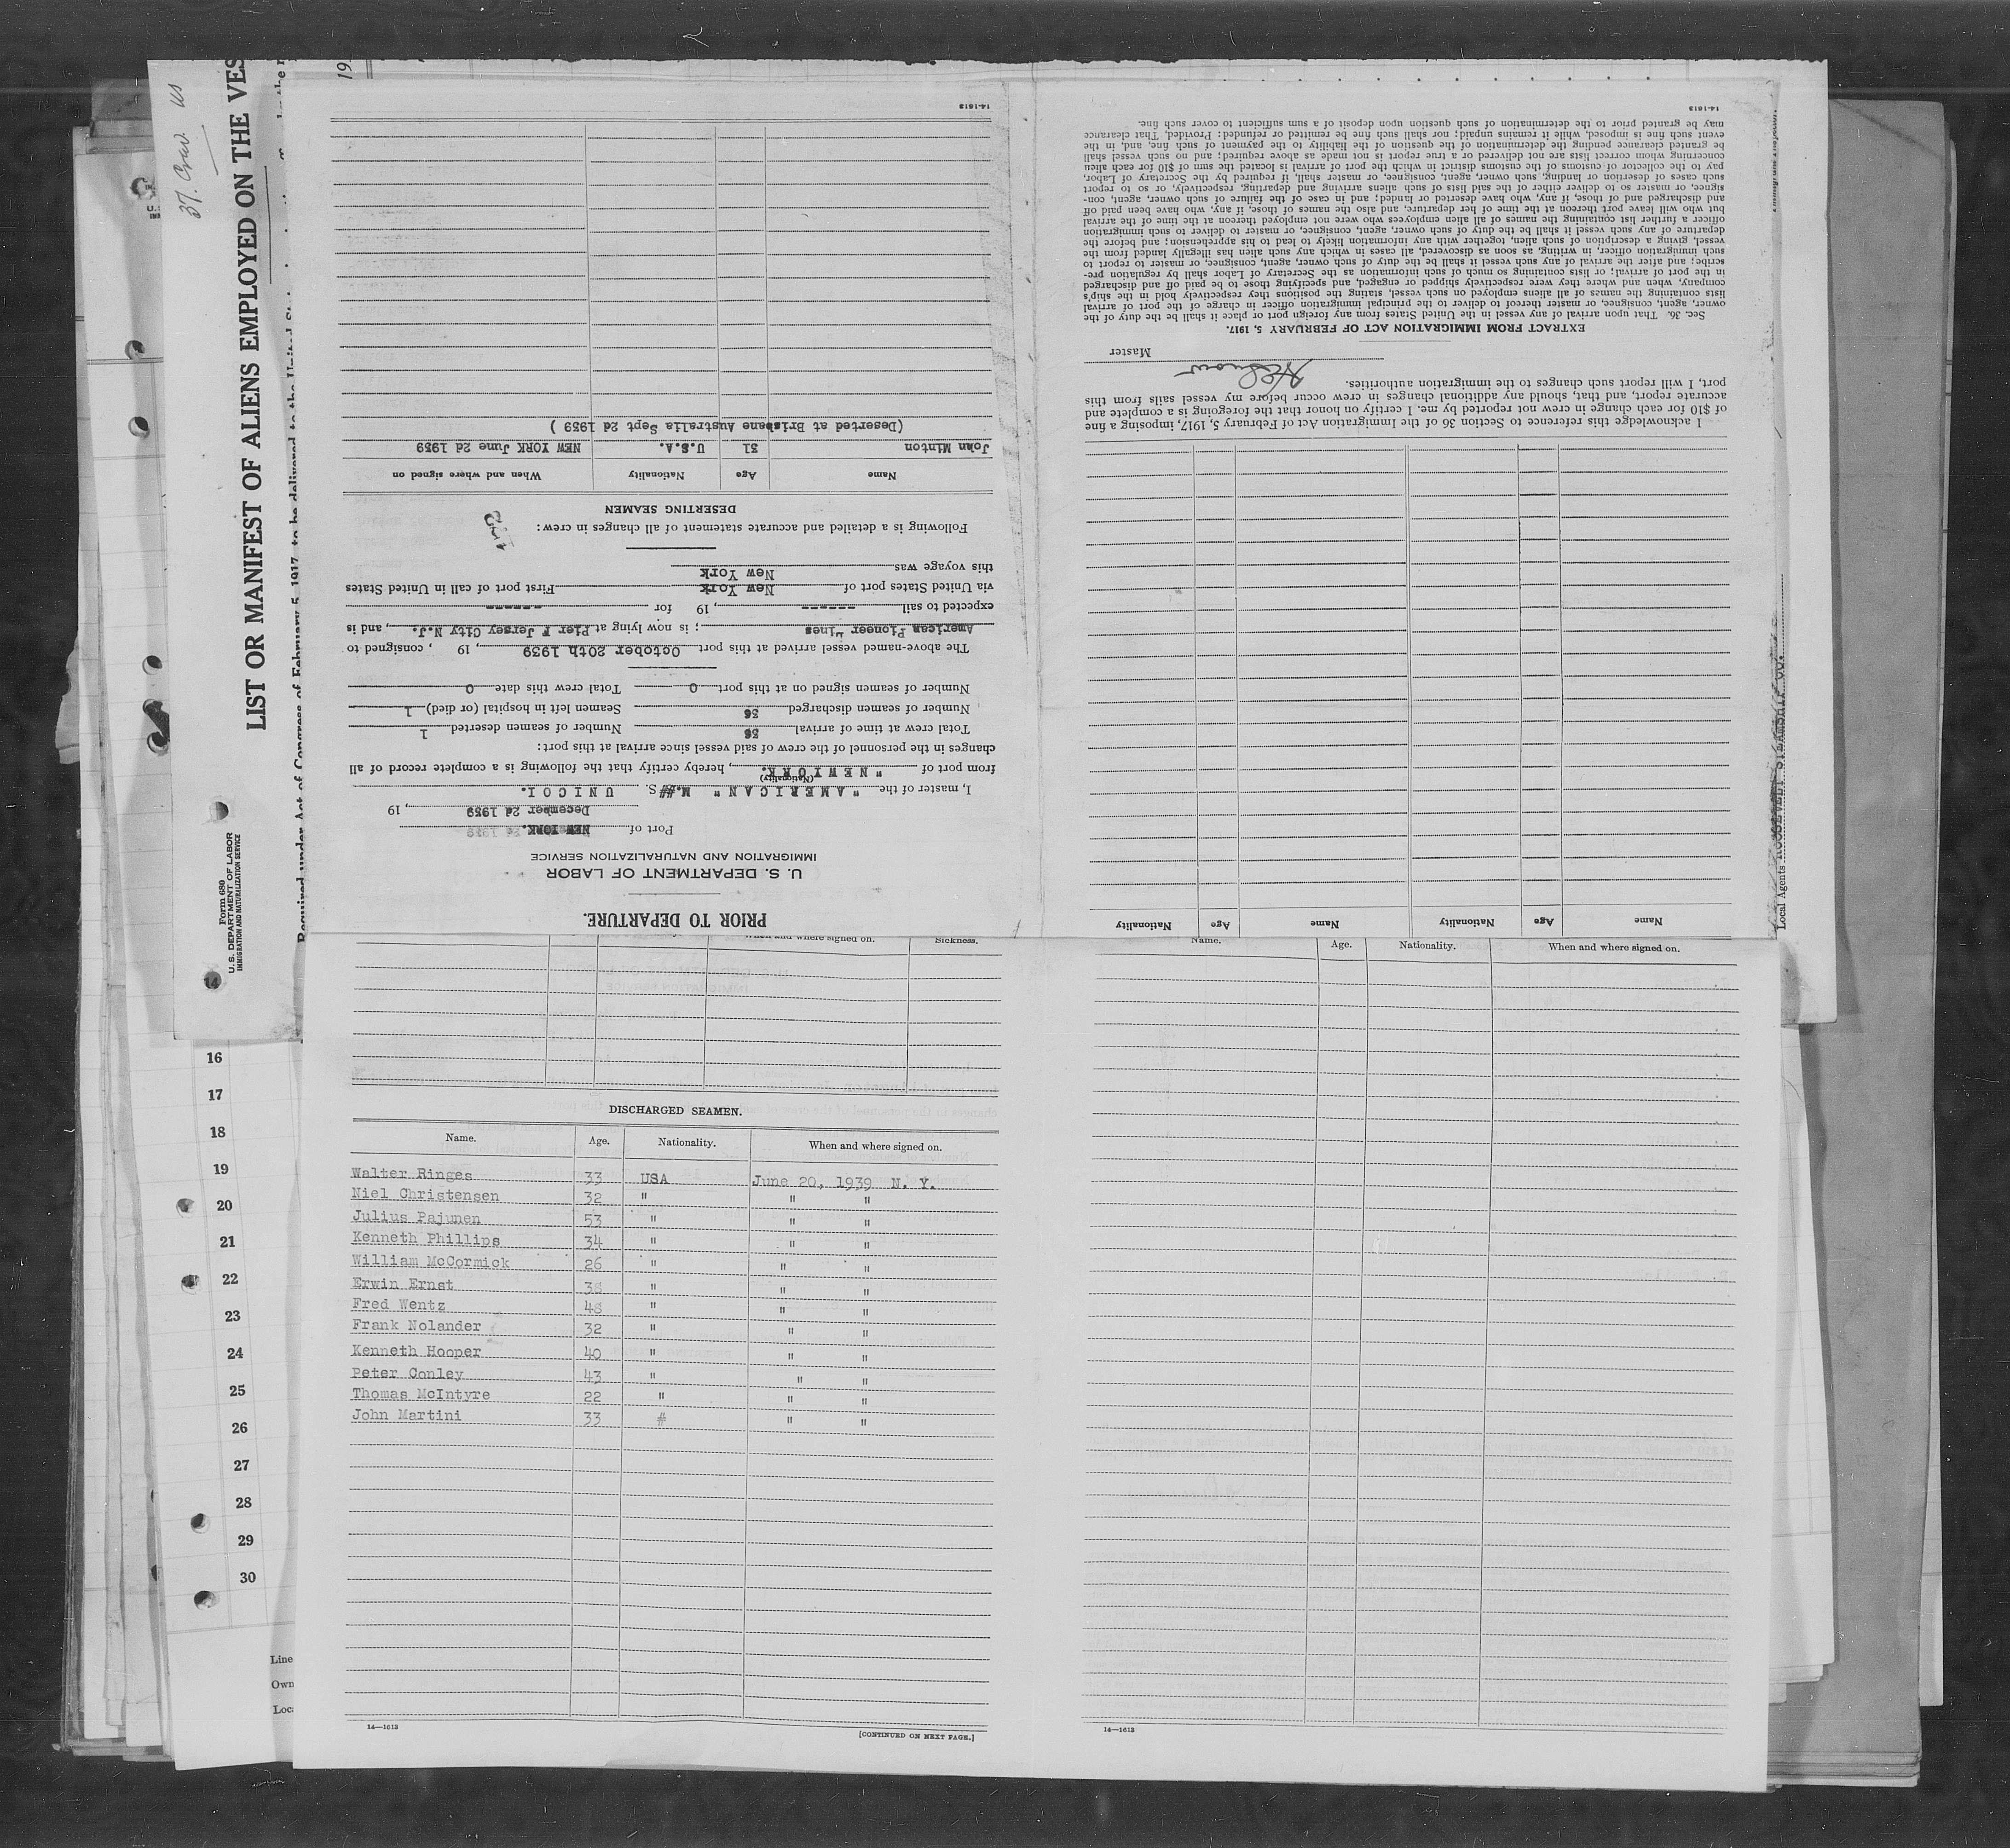 37. Crew US
LIST OR MANIFEST OF ALIENS EMPLOYED ON THE VES
Required under Act of Congress of February 5, 1917, to be delivered to the United
Form 680
U. S. DEPARTMENT OF LABOR
IMMIGRATION AND NATURALIZATION SERVICE
PRIOR TO DEPARTURE.
U. S. DEPARTMENT OF LABOR
IMMIGRATION AND NATURALIZATION SERVICE
Port of NEW YORK.
December 2d 1939, 19
I, master of the "AMERICAN" M.##S. UNICOI.
(Nationality)
from port of "NEWYORK., hereby certify that the following is a complete record of all
changes in the personnel of the crew of said vessel since arrival at this port:
Total crew at time of arrival 36 Number of seamen deserted 1
Number of seamen discharged 36 Seamen left in hospital (or died) 1
Number of seamen signed on at this port 0 Total crew this date 0
The above-named vessel arrived at this port October 20th 1939, 19 , consigned to
American Pioneer Lines; is now lying at Pier F Jersey City N.J., and is
expected to sail ------, 19 for ------
via United States port of New York First port of call in United States
this voyage was New York
Following is a detailed and accurate statement of all changes in crew:
DESERTING SEAMEN
Name Age Nationality When and where signed on
John Minton 31 U.S.A. NEW YORK June 2d 1939
(Deserted at Brisbane Australia Sept 2d 1939 )
14-1613
Name Age Nationality Name Age Nationality
I acknowledge this reference to Section 36 of the Immigration Act of February 5, 1917, imposing a fine
of $10 for each change in crew not reported by me. I certify on honor that the foregoing is a complete and
accurate report, and that, should any additional changes in crew occur before my vessel sails from this
port, I will report such changes to the immigration authorities.
Master
EXTRACT FROM IMMIGRATION ACT OF FEBRUARY 5, 1917.
Sec. 36. That upon arrival of any vessel in the United States from any foreign port or place it shall be the duty of the
owner, agent, consignee, or master thereof to deliver to the principal immigration officer in charge of the port of arrival
lists containing the names of all aliens employed on such vessel, stating the positions they respectively hold in the ship's
company, when and where they were respectively shipped or engaged, and specifying those to be paid off and discharged
in the port of arrival; or lists containing so much of such information as the Secretary of Labor shall by regulation pre-
scribe; and after the arrival of any such vessel it shall be the duty of such owner, agent, consignee, or master to report to
such immigration officer, in writing, as soon as discovered, all cases in which any such alien has illegally landed from the
vessel, giving a description of such alien, together with any information likely to lead to his apprehension; and before the
departure of any such vessel it shall be the duty of such owner, agent, consignee, or master to deliver to such immigration
officer a further list containing the names of all alien employees who were not employed thereon at the time of the arrival
but who will leave port thereon at the time of her departure, and also the names of those, if any, who have been paid off
and discharged and of those, if any, who have deserted or landed; and in case of the failure of such owner, agent, con-
signee, or master so to deliver either of the said lists of such aliens arriving and departing, respectively, or so to report
such cases of desertion or landing, such owner, agent, consignee, or master shall, if required by the Secretary of Labor,
pay to the collector of customs of the customs district in which the port of arrival is located the sum of $10 for each alien
concerning whom correct lists are not delivered or a true report is not made as above required; and no such vessel shall
be granted clearance pending the determination of the question of the liability to the payment of such fine, and, in the
event such fine is imposed, while it remains unpaid; nor shall such fine be remitted or refunded: Provided, That clearance
may be granted prior to the determination of such question upon deposit of a sum sufficient to cover such fine.
14-1613
Local Agents ROOSEVELT STEAMSHIP CO.
When and where signed on. Sickness.
Name. Age. Nationality. When and where signed on.
DISCHARGED SEAMEN.
Name. Age. Nationality. When and where signed on.
Walter Ringes 33 USA June 20, 1939 N. Y.
Niel Christensen 32 " " "
Julius Pajunen 53 " " "
Kenneth Phillips 34 " " "
William McCormick 26 " " "
Erwin Ernst 38 " " "
Fred Wentz 48 " " "
Frank Nolander 32 " " "
Kenneth Hooper 40 " " "
Peter Conley 43 " " "
Thomas McIntyre 22 " " "
John Martini 33 # " "
14—1613
[CONTINUED ON NEXT PAGE.]
14—1613
14
16
17
18
19
20
21
22
23
24
25
26
27
28
29
30
Line
Own
Loca